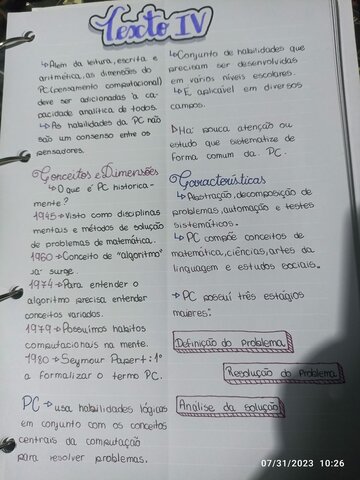 Texto IV
↳ Além da leitura, escrita e
aritmética, as dimensões do
PC (pensamento computacional)
deve ser adicionadas à ca-
pacidade analítica de todos.
↳ As habilidades da PC não
são um consenso entre os
pensadores.
Conceitos e Dimensões
↳ O que é PC historica-
mente?
1945 → Visto como disciplinas
mentais e métodos de solução
de problemas de matemática.
1960 → Conceito de "algoritmo"
já surge.
1974 → Para entender o
algoritmo precisa entender
conceitos variados.
1979 → Possuímos hábitos
computacionais na mente.
1980 → Seymour Papert: 1º
a formalizar o termo PC.
PC → usa habilidades lógicas
em conjunto com os conceitos
centrais da computação
para resolver problemas.
↳ Conjunto de habilidades que
precisam ser desenvolvidas
em vários níveis escolares.
↳ É aplicável em diversos
campos.
Há pouca atenção ou
estudo que sistematize de
forma comum da PC.
Características
↳ Abstração, decomposição de
problemas, automação e testes
sistemáticos.
↳ PC compõe conceitos de
matemática, ciências, artes da
linguagem e estudos sociais.
↳ PC possui três estágios
maiores:
Definição do Problema
Resolução do Problema
Análise da solução
07/31/2023 10:26